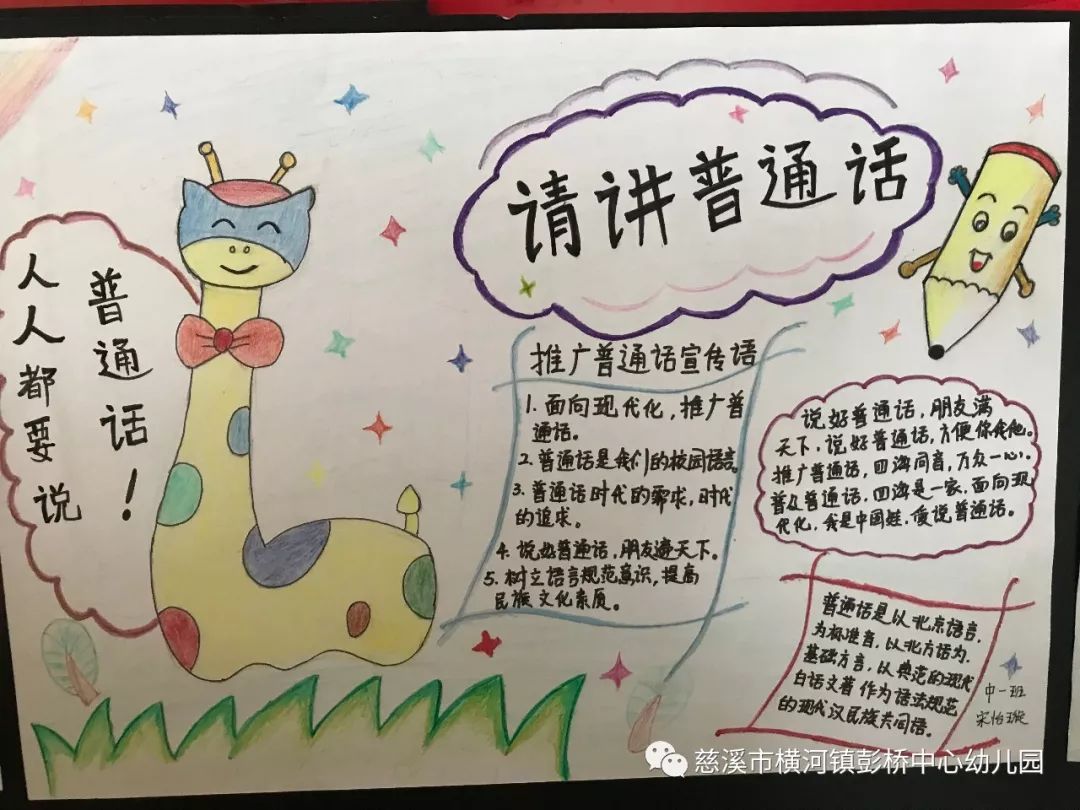 请讲普通话
人人都要说
普通话！
推广普通话宣传语
1. 面向现代化，推广普
通话。
2. 普通话是我们的校园语言。
3. 普通话时代的需求，时代
的追求。
4. 说好普通话，朋友遍天下。
5. 树立语言规范意识，提高
民族文化素质。
说好普通话，朋友满
天下，说好普通话，方便你我他。
推广普通话，四海同音，万众一心，
普及普通话，四海是一家，面向现
代化，我是中国娃，爱说普通话。
普通话是以北京语言，
为标准音，以北方话为，
基础方言，以典范的现代
白话文著作为语法规范
的现代汉民族共同语。
中一班
宋怡璇
慈溪市横河镇彭桥中心幼儿园